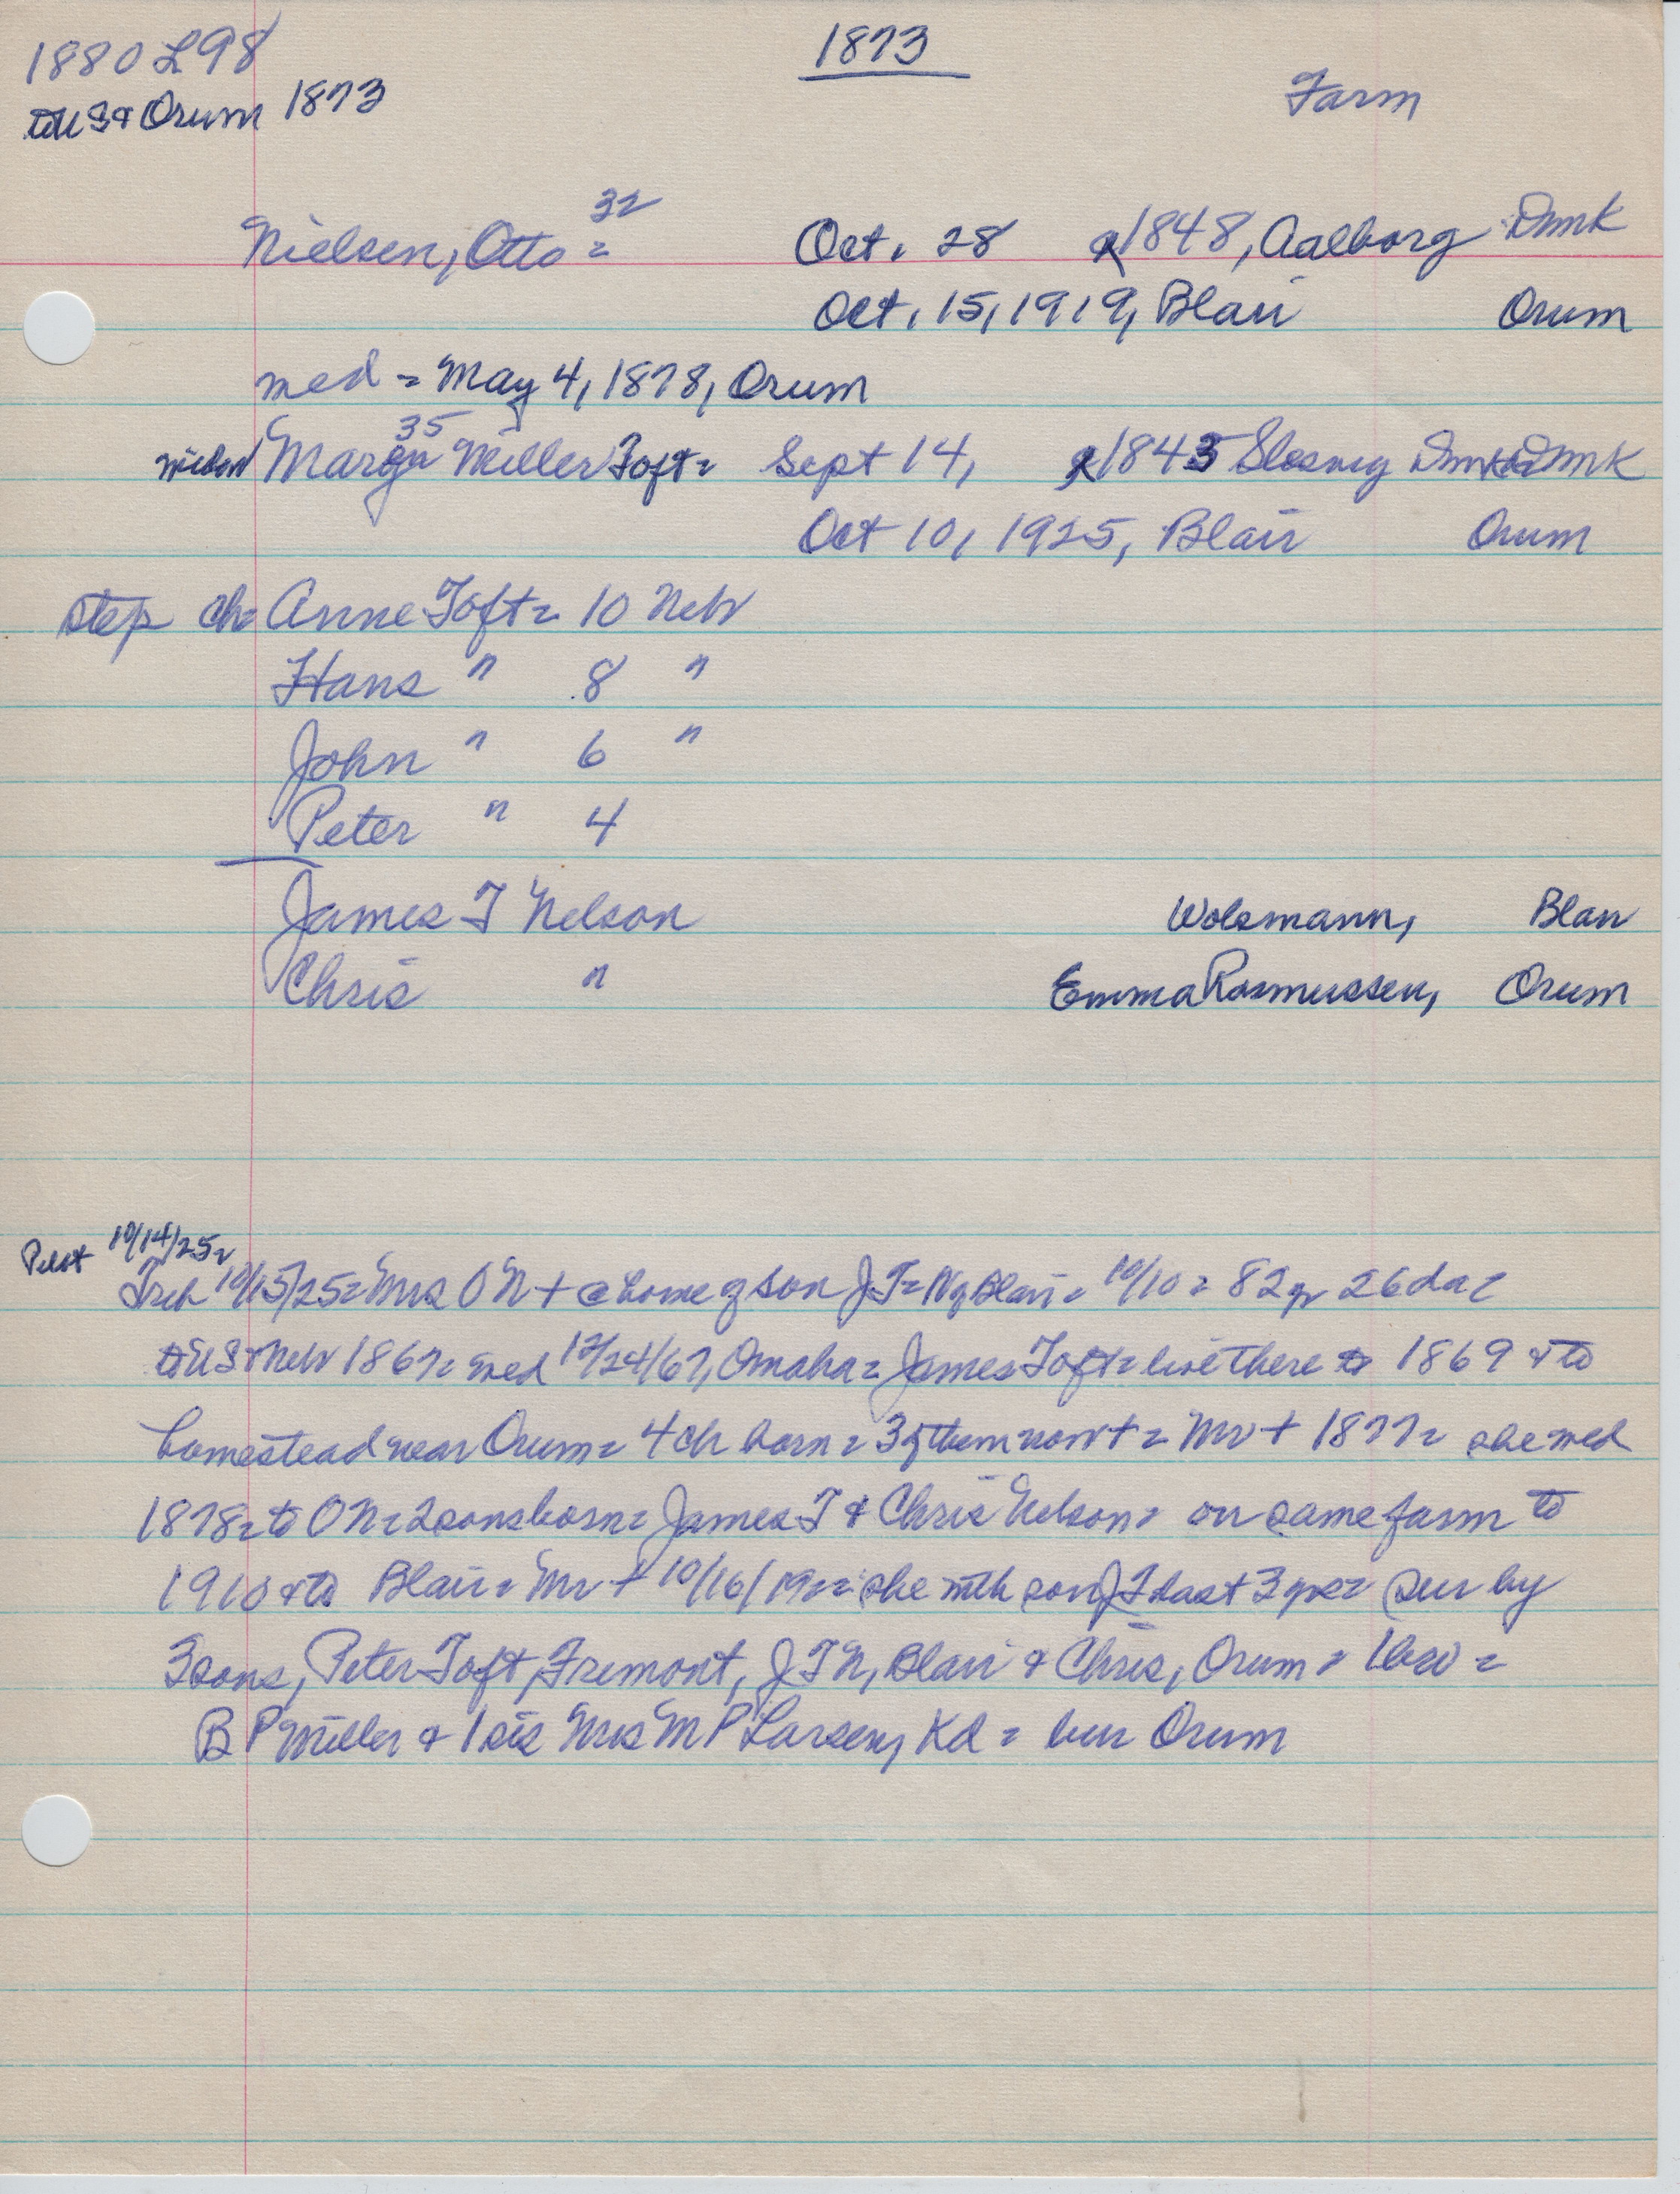 1880 L98
1873
to US & Orum 1873
Farm
32
Nielsen, Otto = Oct. 28 1848, Aalborg Dmk
Oct. 15, 1919, Blair Orum
med = May 4, 1878, Orum
35
widow Miller Toft = Sept 14, 1843 Dmk
Oct 10, 1925, Blair Orum
step ch = Anne Toft = 10 Neb
Hans " 8 "
John " 6 "
Peter " 4
James T Nelson Wolsmann, Blair
Chris " Emma Rasmussen, Orum
10/14/25 =
10/15/25 = Mrs O N + @ home of son J T = N of Blair = 10/10 = 82 yr 26 da =
to US & Neb 1867 = med 12/24/67, Omaha = James Toft = live there to 1869 & to
homestead near Orum = 4 ch born = 3 of them now + = Mr + 1877 = she med
1878 = to O N = 2 sons born = James T & Chris Nelson = on same farm to
1910 & to Blair = Mr + 10/16/19 = she with son J T last 3 yrs = sur by
3 sons, Peter Toft, Fremont, J T N, Blair & Chris, Orum = 1 bro =
B P Miller & 1 sis Mrs M P Larsen, Kd = bur Orum